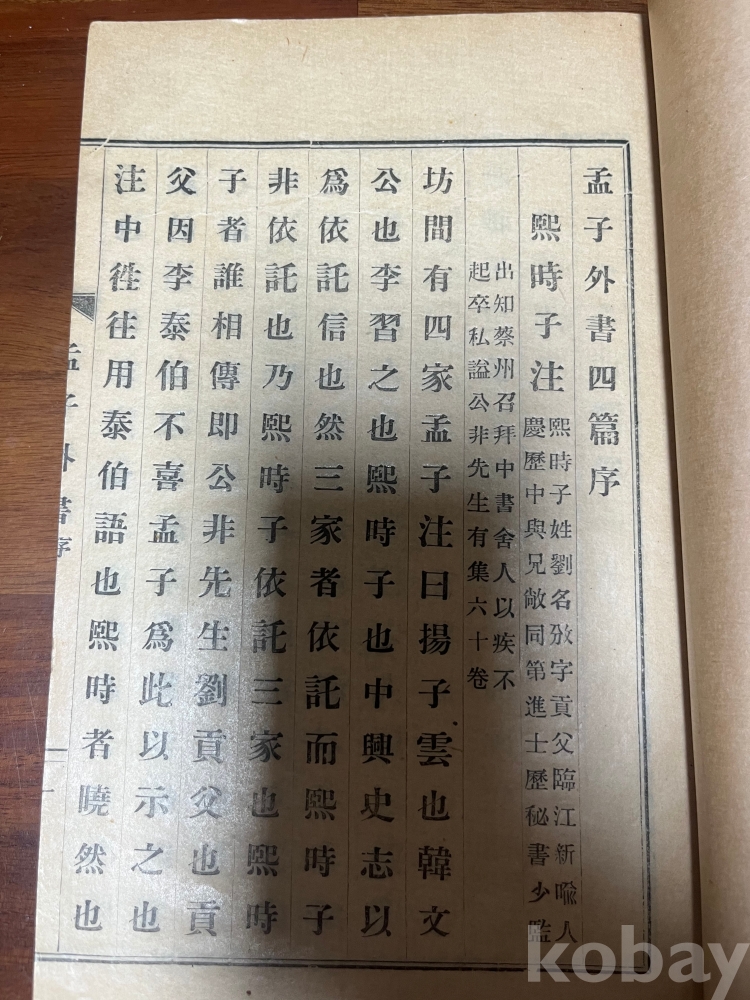 孟子外書四篇序
熙時子注
熙時子姓劉名攽字貢父臨江新喩人
慶歷中與兄敞同第進士歷秘書少監
出知蔡州召拜中書舍人以疾不
起卒私謚公非先生有集六十卷
坊間有四家孟子注曰揚子雲也韓文
公也李習之也熙時子也中興史志以
爲依託信也然三家者依託而熙時子
非依託也乃熙時子依託三家也熙時
子者誰相傳即公非先生劉貢父也貢
父因李泰伯不喜孟子爲此以示之也
注中徃徃用泰伯語也熙時者曉然也
孟子外書序
一
kobay